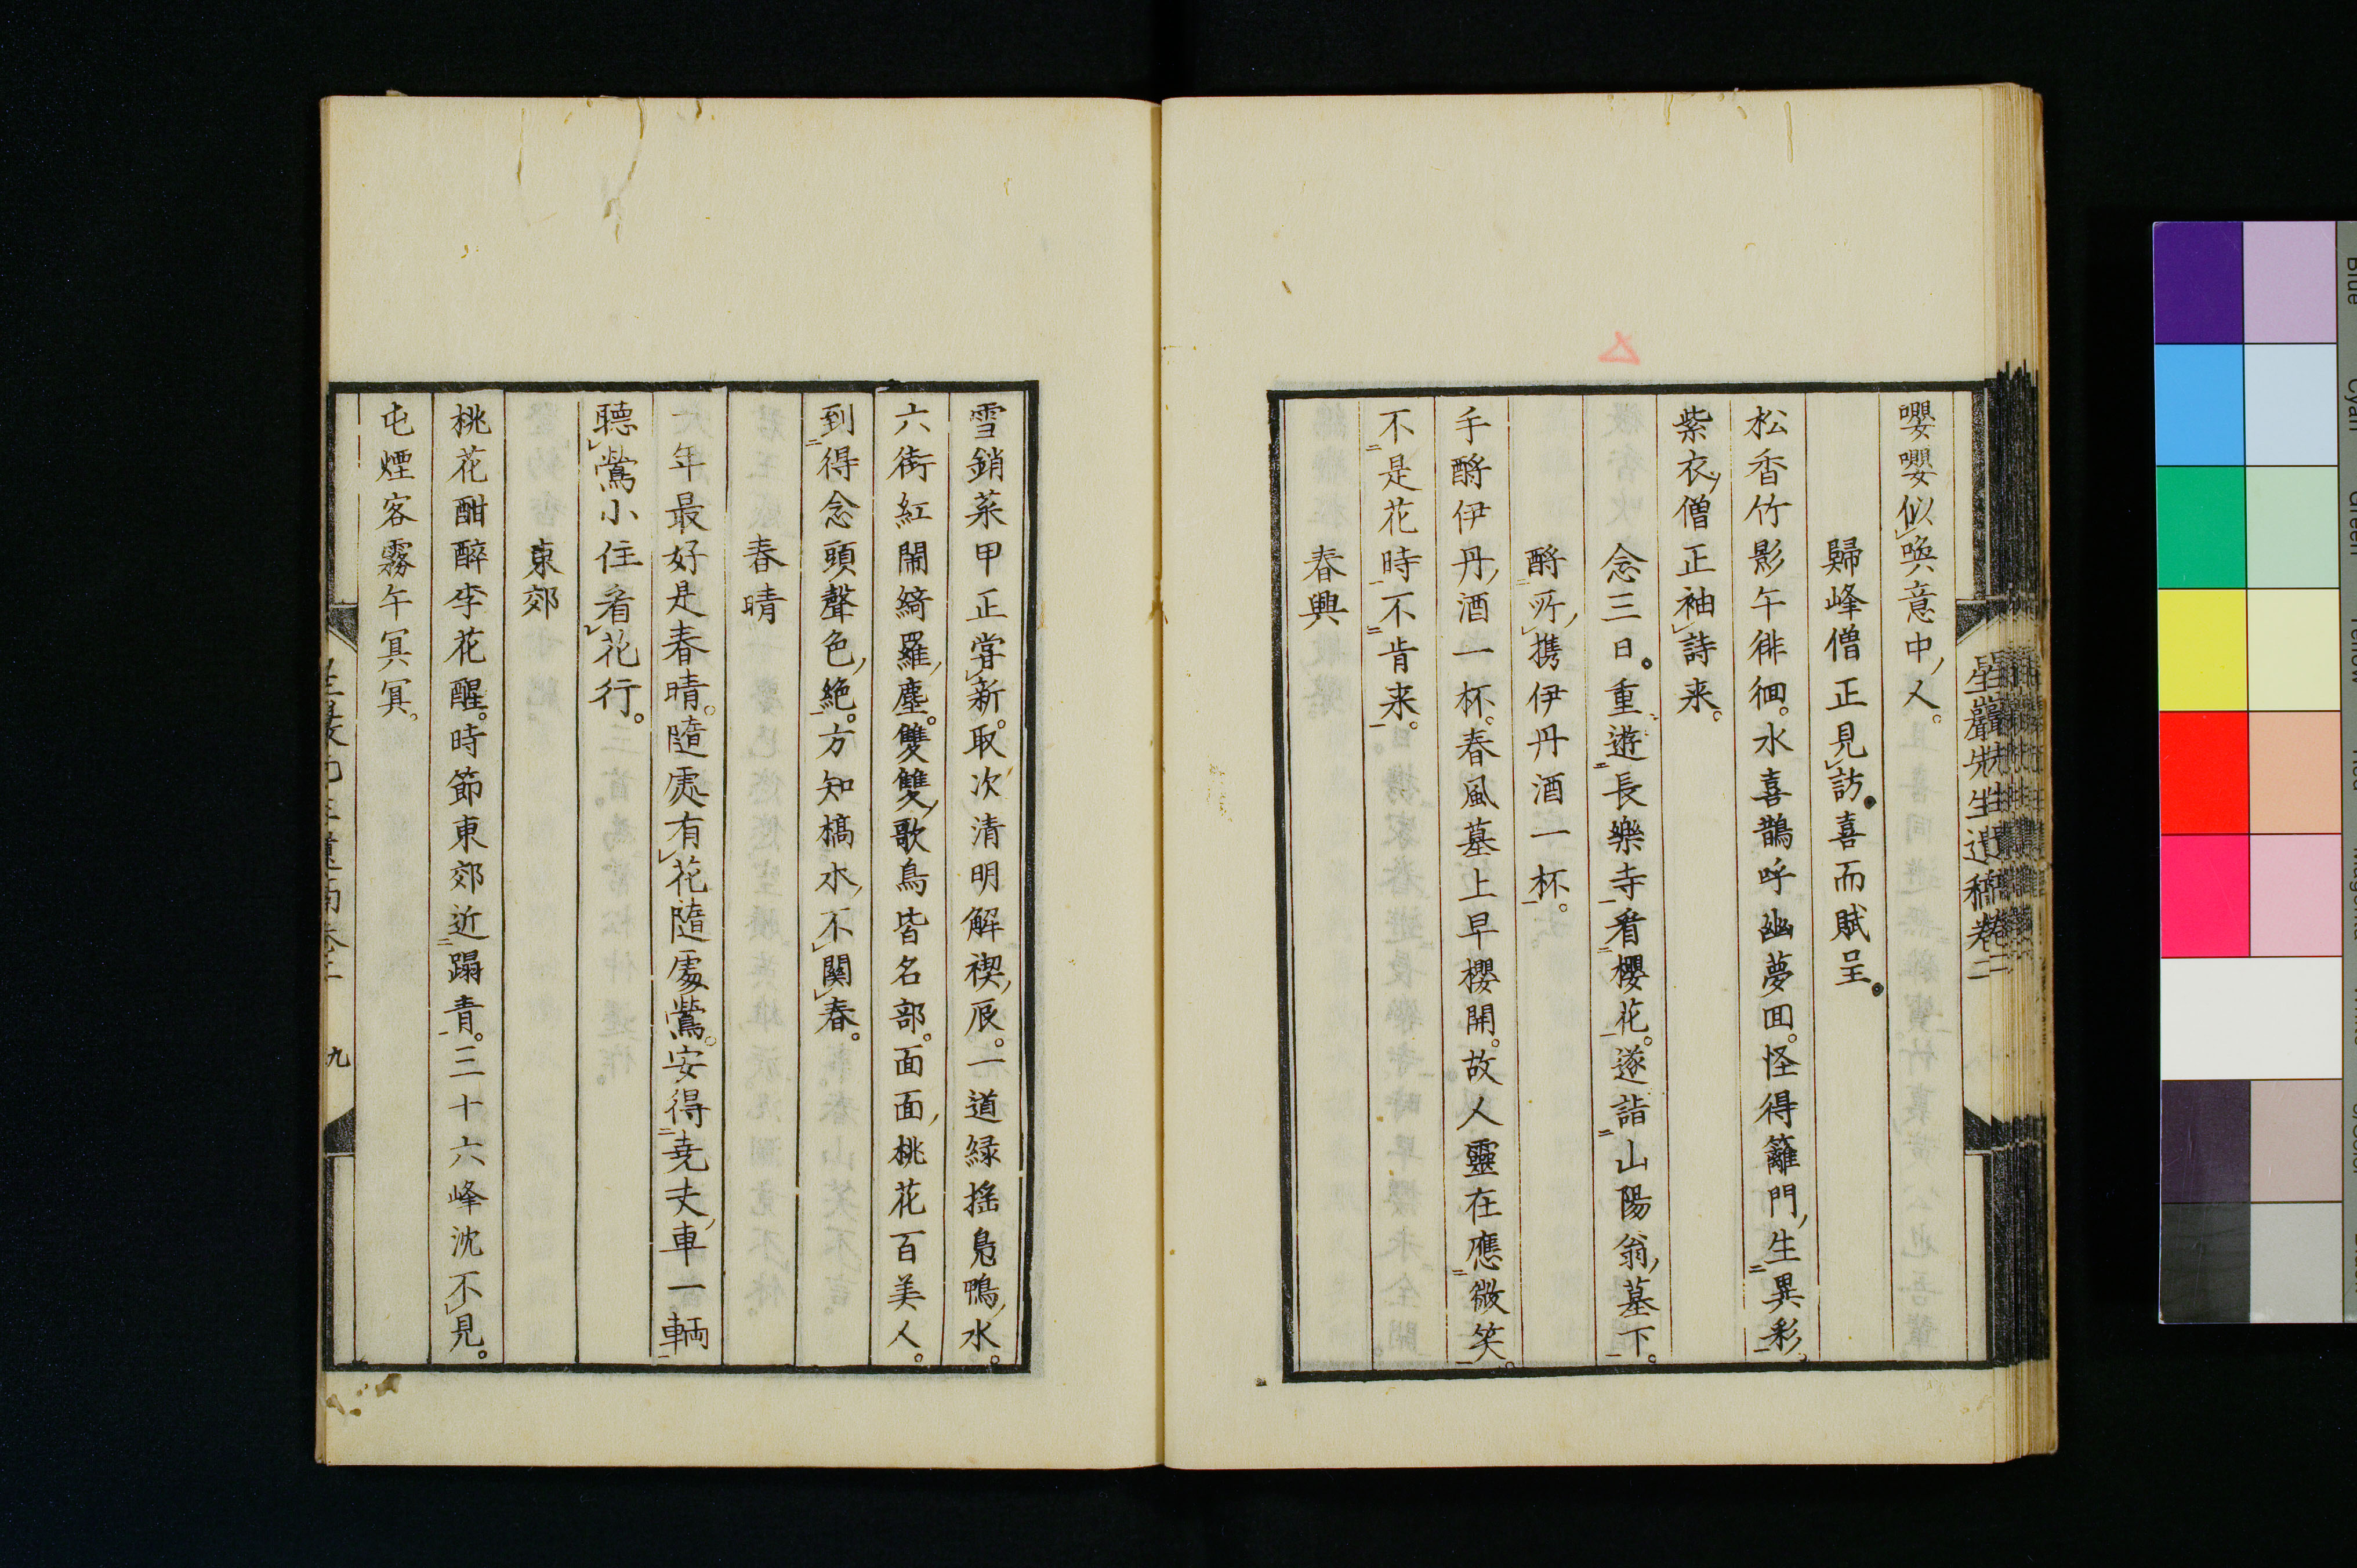 星巖先生遺稿卷二
嚶嚶似喚意中人。
歸峰僧正見訪。喜而賦呈。
松香竹影午徘徊。水喜鵲呼幽夢回。怪得籬門生異彩。
紫衣僧正袖詩来。
念三日。重遊長樂寺看櫻花。遂詣山陽翁墓下。
酹所携伊丹酒一杯。
手酹伊丹酒一杯。春風墓上早櫻開。故人靈在應微笑。
不是花時不肯来。
春興
雪銷菜甲正甞新。取次清明解禊辰。一道緑搖鳧鴨水。
六街紅閙綺羅塵。雙雙歌鳥皆名部。面面桃花百美人。
到得念頭聲色絶。方知槁木不關春。
春晴
一年最好是春晴。隨處有花隨處鶯。安得堯夫車一輛
聴鶯小住看花行。
東郊
桃花酣醉李花醒。時節東郊近蹋青。三十六峰沈不見。
屯煙客霧午冥冥。
九